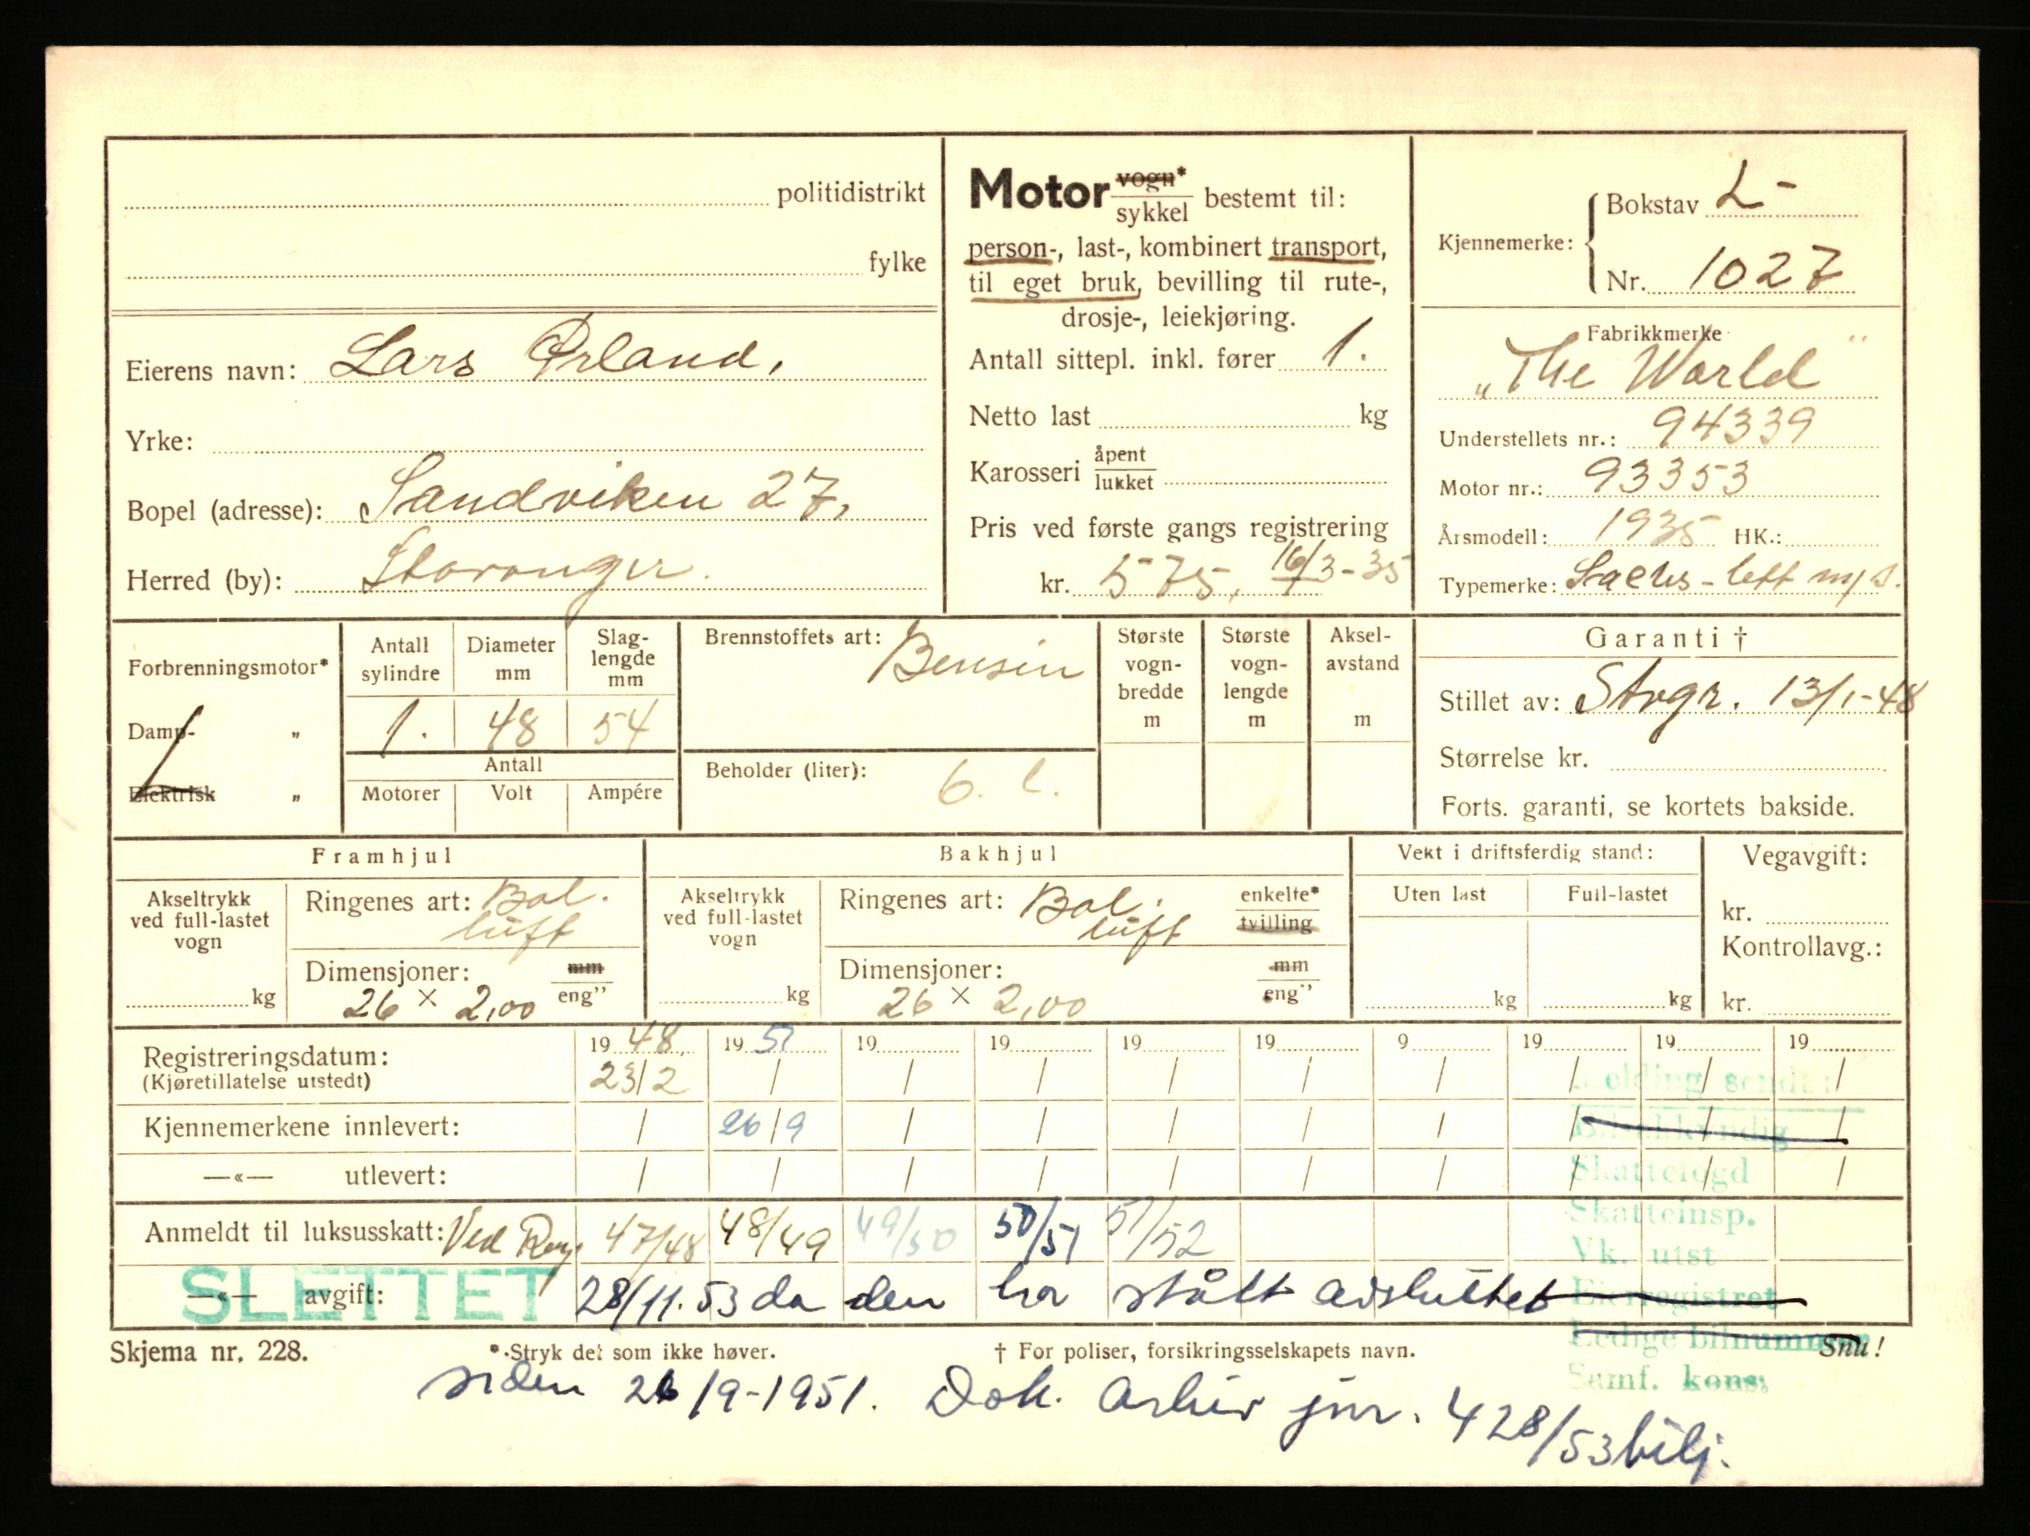 politidistrikt
fylke
Eierens navn: Lars Ørland,
Yrke:
Bopel (adresse): Sandviken 27,
Herred (by): Stavanger.
Motor vogn* / sykkel bestemt til:
person-, last-, kombinert transport,
til eget bruk, bevilling til rute-,
drosje-, leiekjøring.
Antall sittepl. inkl. fører 1.
Netto last kg
Karosseri åpent / lukket
Pris ved første gangs registrering
kr. 575, 16/3-35
Kjennemerke: Bokstav L-
Nr. 1027
Fabrikkmerke
„The World"
Understellets nr.: 94339
Motor nr.: 93353
Årsmodell: 1935 HK.:
Typemerke: Sachs - lett m/s.
Forbrenningsmotor*
Damp- „
Elektrisk „
Antall sylindre
1.
Diameter mm
48
Slag-lengde mm
54
Antall
Motorer Volt Ampére
Brennstoffets art: Bensin
Beholder (liter): 6. l.
Største vogn-bredde m
Største vogn-lengde m
Aksel-avstand m
Garanti †
Stillet av: Stvgr. 13/1-48
Størrelse kr.
Forts. garanti, se kortets bakside.
Framhjul
Akseltrykk ved full-lastet vogn
kg
Ringenes art: Bal.
luft
Dimensjoner: mm / eng"
26 × 2,00
Bakhjul
Akseltrykk ved full-lastet vogn
kg
Ringenes art: Bal. enkelte* / tvilling
luft
Dimensjoner: mm / eng"
26 × 2,00
Vekt i driftsferdig stand:
Uten last Full-lastet
kg kg
Vegavgift:
kr.
Kontrollavg.:
kr.
Registreringsdatum: 19 48. 19 51 19 19 19 19 9 19 19 19
(Kjøretillatelse utstedt) 23/2 / / / / / / / / /
Kjennemerkene innlevert: / 26/9 / / / / / / / /
—«— utlevert: / / / / / / / / / /
Anmeldt til luksusskatt: Ved Reg. 47/48 48/49 49/50 50/51 51/52
—«— avgift:
SLETTET 28/11.53 da den har stått avskiltet
Melding sendt:
Bilsakkyndig
Skattefogd
Skatteinsp.
Vk. utst
Eierregistret
Ledige bilnummer
Samf. kons;
Skjema nr. 228. *·Stryk det som ikke høver. † For poliser, forsikringsselskapets navn. Snu!
siden 26/9-1951. Dok. arkiv jnr. 428/53 bilj.